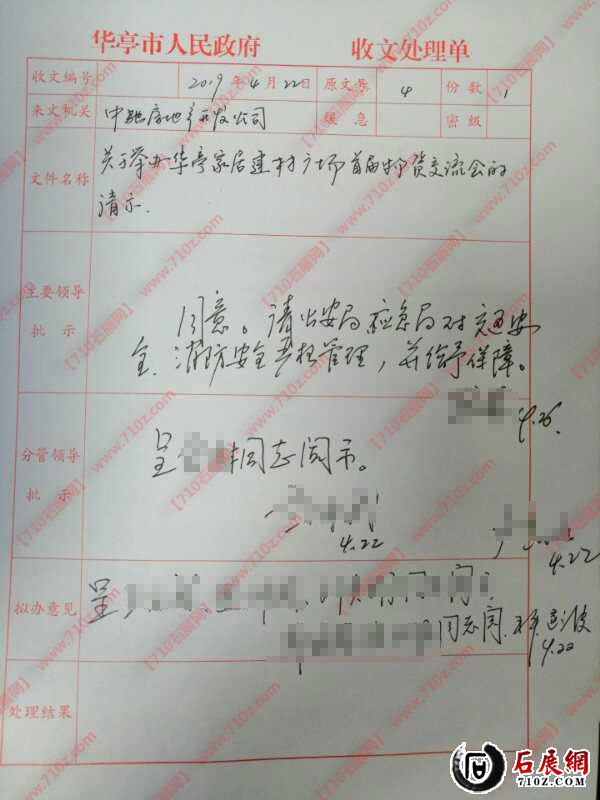 华亭市人民政府 收文处理单
收文编号 2019 年 4 月 22日 原文号 4 份数 1
来文机关 中驰房地产开发公司 缓急 密级
文件名称 关于举办华亭家居建材广场首届物资交流会的
请示.
主要领导
批示
同意。请公安局应急局对交通安
全、消防安全严格管理，并给予保障。
4.26.
分管领导
批示
呈 同志阅示。
4.22
4.22
拟办意见 呈
同志阅.
4.22
处理结果
【710石展网】 www.710z.com
石展網
www.710z.com